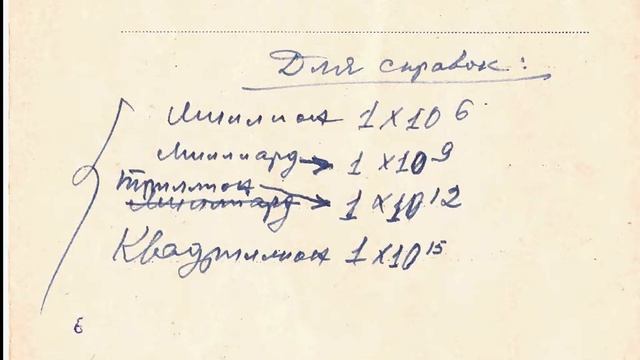 Для справок:
Миллион 1 x 10 6
Миллиард → 1 x 10 9
Триллион
Миллиард → 1 x 10 12
Квадриллион 1 x 10 15
6